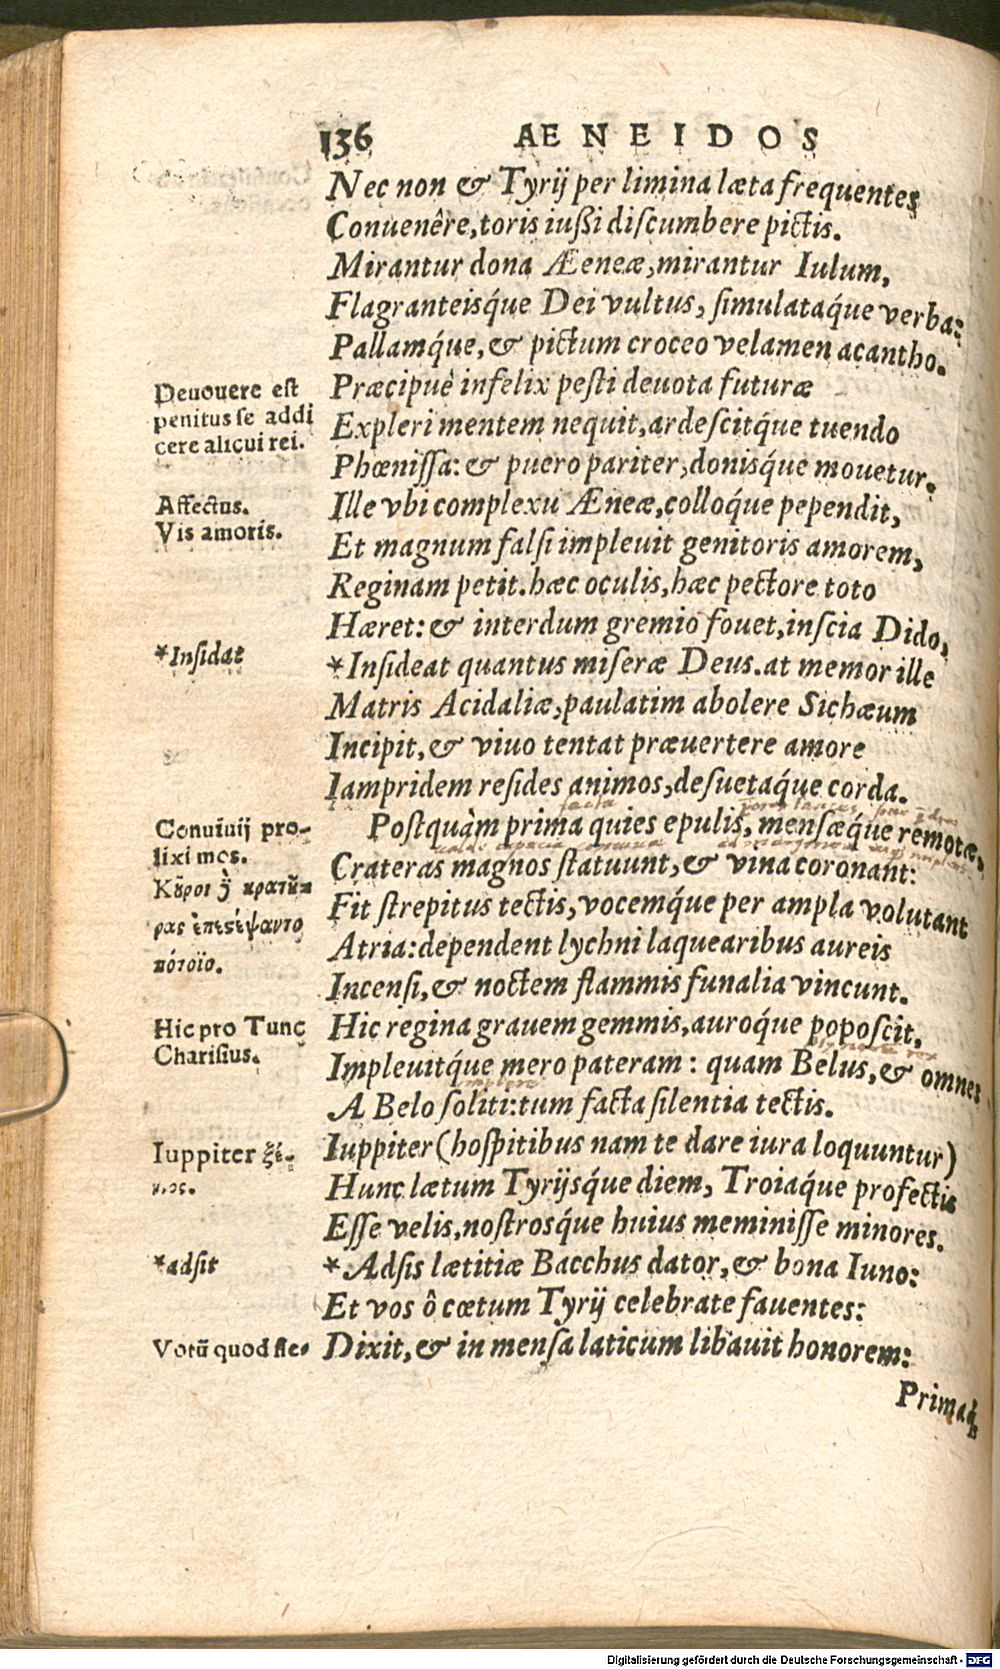 136 AENEIDOS
Nec non & Tyrij per limina læta frequentes
Conuenêre, toris iußi discumbere pictis.
Mirantur dona Æneæ, mirantur Iulum,
Flagranteisq́ue Dei vultus, simulataq́ue verba:
Pallamq́ue, & pictum croceo velamen acantho.
Præcipuè infelix pesti deuota futuræ
Deuouere est
penitus se addi
cere alicui rei.
Expleri mentem nequit, ardescitq́ue tuendo
Phœnissa: & puero pariter, donisq́ue mouetur.
Ille vbi complexu Æneæ, colloq́ue pependit,
Affectus.
Vis amoris.
Et magnum falsi impleuit genitoris amorem,
Reginam petit. hæc oculis, hæc pectore toto
Hæret: & interdum gremio fouet, inscia Dido,
*Insidat
*Insideat quantus miseræ Deus. at memor ille
Matris Acidaliæ, paulatim abolere Sichæum
Incipit, & viuo tentat præuertere amore
Iampridem resides animos, desuetaq́ue corda.
Postquàm prima quies epulis, mensæq́ue remotæ,
Conuiuij pro-
lixi mos.
Crateras magnos statuunt, & vina coronant:
Κοῦροι ἢ κρατῆ-
ρας ἐπεστέψαντο
πότοϊο.
Fit strepitus tectis, vocemq́ue per ampla volutant
Atria: dependent lychni laquearibus aureis
Incensi, & noctem flammis funalia vincunt.
Hic pro Tunc
Charisius.
Hic regina grauem gemmis, auroq́ue poposcit,
Impleuitq́ue mero pateram: quam Belus, & omnes
A Belo soliti: tum facta silentia tectis.
Iuppiter ξέ-
νιος.
Iuppiter (hospitibus nam te dare iura loquuntur)
Hunc lætum Tyrijsq́ue diem, Troiaq́ue profectis
Esse velis, nostrosq́ue huius meminisse minores.
*adsit
*Adsis lætitiæ Bacchus dator, & bona Iuno:
Et vos ô cœtum Tyrij celebrate fauentes:
Votũ quod fie-
Dixit, & in mensa laticum libauit honorem:
Primaq́;
Digitalisierung gefördert durch die Deutsche Forschungsgemeinschaft - DFG